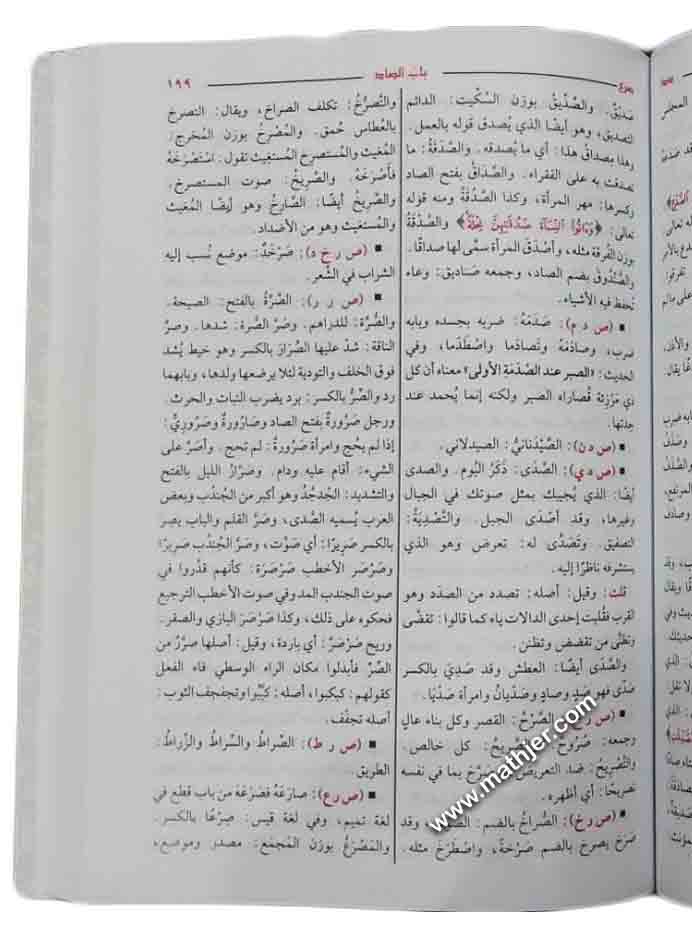 صرع
باب الصاد
١٩٩
صَدِيقٌ. والصِّدِّيقُ. بوزن السكِّيت: الدائم
التصديق، وهو أيضًا الذي يُصدق قوله بالعمل.
وهذا مِصداق هذا: أي ما يصدقه. والصَّدَقَةُ: ما
تصدقت به على الفقراء. والصَّدَاقُ بفتح الصاد
وكسرها: مهر المرأة، وكذا الصَّدُقَةُ ومنه قوله
تعالى: ﴿وَءَاتُوا۟ ٱلنِّسَآءَ صَدُقَٰتِهِنَّ نِحْلَةً﴾ والصُّدْقَةُ
بوزن الغُرفة مثله، وأصْدَقَ المرأة سمَّى لها صداقًا.
والصُّنْدُوقُ بضم الصاد، وجمعه صَناديق: وعاء
تُحفظ فيه الأشياء.
■ (ص د م): صَدَمَهُ: ضربه بجسده وبابه
ضرب، وصَادَمَهُ وتَصَادَما واصْطَدَما، وفي
الحديث: «الصبر عند الصَّدْمَةِ الأولى» معناه أن كل
ذي مَرْزِئَة قُصاراه الصبر ولكنه إنما يُحمد عند
حِدتها.
■ (ص د ن): الصَّيْدَنَانيُّ: الصيدلاني.
■ (ص د ي): الصَّدَى: ذَكَرُ البُوم. والصدى
أيضًا: الذي يُجيبك بمثل صوتك في الجبال
وغيرها، وقد أصْدَى الجبل. والتَّصْدِيَةُ:
التصفيق. وتَصَدَّى له: تعرض وهو الذي
يستشرفه ناظرًا إليه.
قلت: وقيل: أصله: تصدد من الصدَد وهو
القرب فقُلبت إحدى الدالات ياء كما قالوا: تقضَّى
وتظنَّى من تقضض وتظنن.
والصَّدَى أيضًا: العطش وقد صَدِيَ بالكسر
صَدًى فهو صَدٍ وصادٍ وصَدْيان وامرأة صَدْيَا.
■ (ص ر ح): الصَّرْحُ: القصر وكل بناء عالٍ
وجمعه: صُرُوحٌ. والصَّرِيحُ: كل خالص.
والتَّصْرِيحُ: ضد التعريض. وصَرَّحَ بما في نفسه
تصريحًا: أي أظهره.
■ (ص ر خ): الصُّرَاخُ بالضم: الصَّوت، وقد
صَرَخَ يصرخ بالضم صَرْخَةً، واصْطَرَخَ مثله.
والتَّصَرُّخُ: تكلف الصراخ، ويقال: التصرخ
بالعُطاس حُمق. والمُصْرِخُ بوزن المُخرج:
المُغيث والمُستصرِخ المُستغيث تقول: اسْتَصْرَخَهُ
فأصْرَخَهُ. والصَّرِيخُ: صوت المستصرخ.
والصَّرِيخُ أيضًا: الصَّارِخُ وهو أيضًا المُغيث
والمستغيث وهو من الأضداد.
■ (ص ر خ د): صَرْخَدٌ: موضع نُسب إليه
الشراب في الشِّعر.
■ (ص ر ر): الصَّرَّةُ بالفتح: الصيحة.
والصُّرة: للدراهم. وصَرَّ الصُّرة: شدها. وصرَّ
الناقة: شدّ عليها الصِّرَارَ بالكسر وهو خيط يُشد
فوق الخلف والتودية لئلا يرضعها ولدها، وبابهما
رد والصِّرُّ بالكسر: برد يضرب النبات والحرث.
ورجل صَرُورَةٌ بفتح الصاد وصَارُورَةٌ وصَرُورِيٌّ:
إذا لم يحُج وامرأة صَرُورةٌ: لم تحج. وأصَرَّ على
الشيء: أقام عليه ودام. وصَرَّارُ الليل بالفتح
والتشديد: الجُدجُدُ وهو أكبر من الجُندُب وبعض
العرب يُسميه الصَّدى، وصَرَّ القلم والباب يصِر
بالكسر صَرِيرًا: أي صَوَّت، وصَرَّ الجُندُب صَرِيرًا
وصَرْصَر الأخطب صَرْصَرَة: كأنهم قدَّروا في
صوت الجندب المد وفي صوت الأخطب الترجيع
فحكوه على ذلك، وكذا صَرْصَرَ البازي والصقر.
وريح صَرْصَرٌ: أي باردة، وقيل: أصلها صرَّرٌ من
الصِّرِّ فأبدلوا مكان الراء الوسطي فاء الفعل
كقولهم: كبكبوا، أصله: كبَّبُوا وتجفجف الثوب:
أصله تجفَّف.
■ (ص ر ط): الصِّراطُ والسِّراطُ والزِّراطُ:
الطريق.
■ (ص ر ع): صارعَهُ فصَرَعَهُ من باب قطع في
لغة تميم، وفي لغة قيس: صِرْعًا بالكسر.
والمَصْرَعُ بوزن المَجمَع: مصدر وموضع،
www.mathjer.com